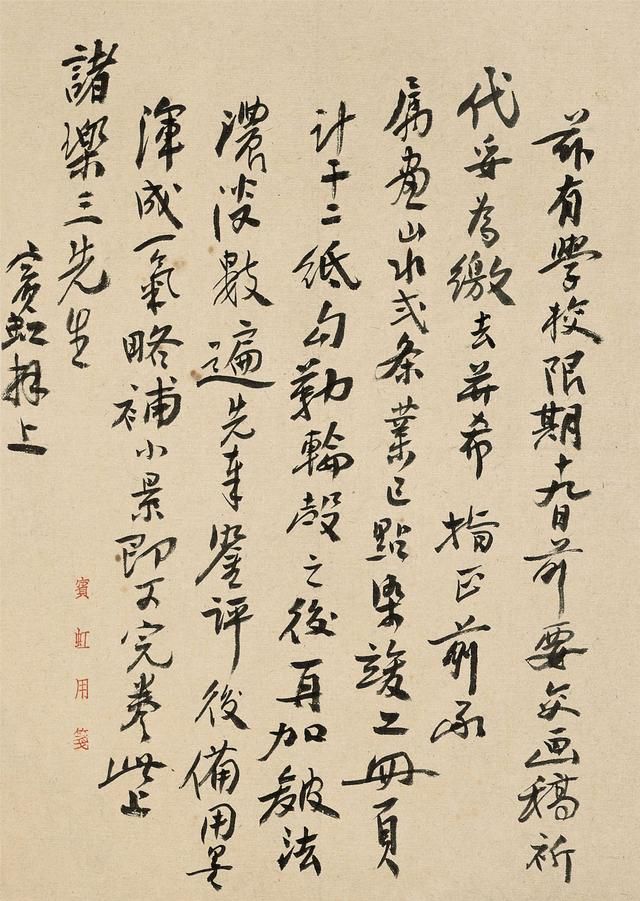 茲有學校限期十九日前要交画稿祈
代妥為繳去并希 指正前承
属畫山水弍条業已點染竣工冊頁
計十二紙勾勒輪殻之後再加皴法
濃淡數遍先奉鉴評後備用墨
渾成一氣略補小景即可完卷此上
諸樂三先生
賓虹拜上
賓虹用箋